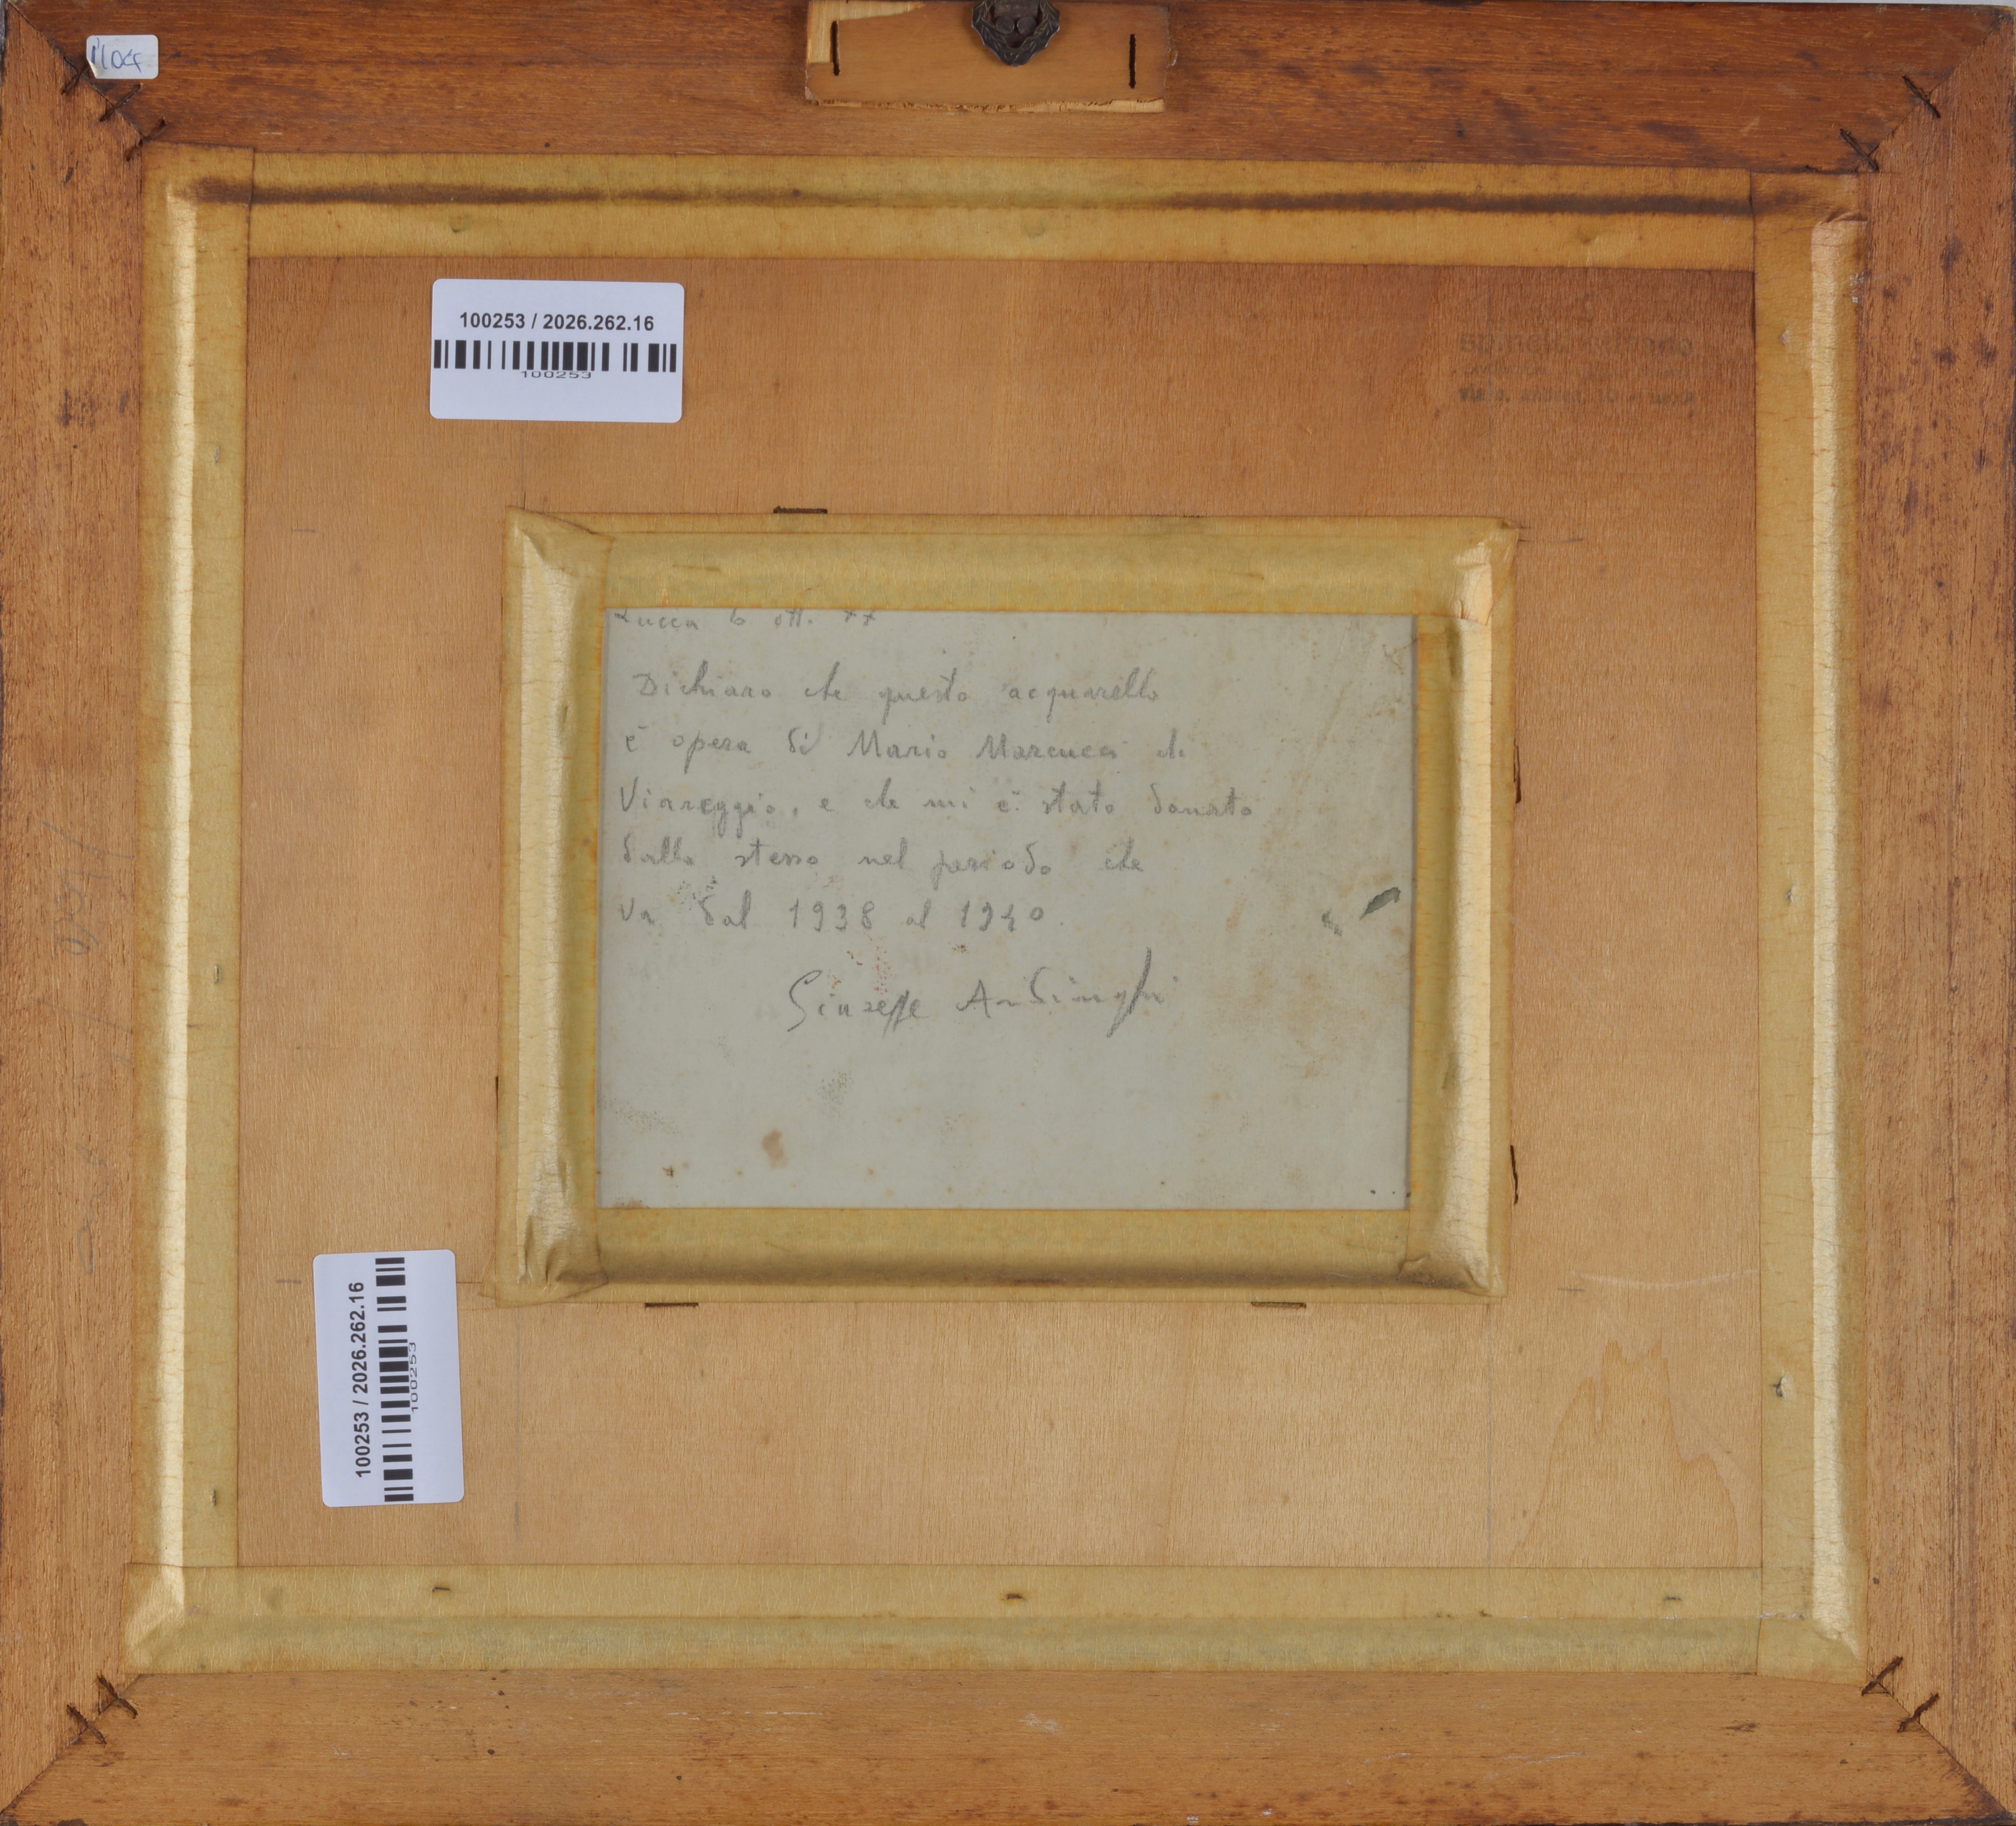 1104
100253 / 2026.262.16
100253
Lucca 6 ott. 77
Dichiaro che questo acquarello
è opera di Mario Marcucci di
Viareggio, e che mi è stato donato
dallo stesso nel periodo che
va dal 1938 al 1940.
Giuseppe Ardinghi
100253 / 2026.262.16
100253